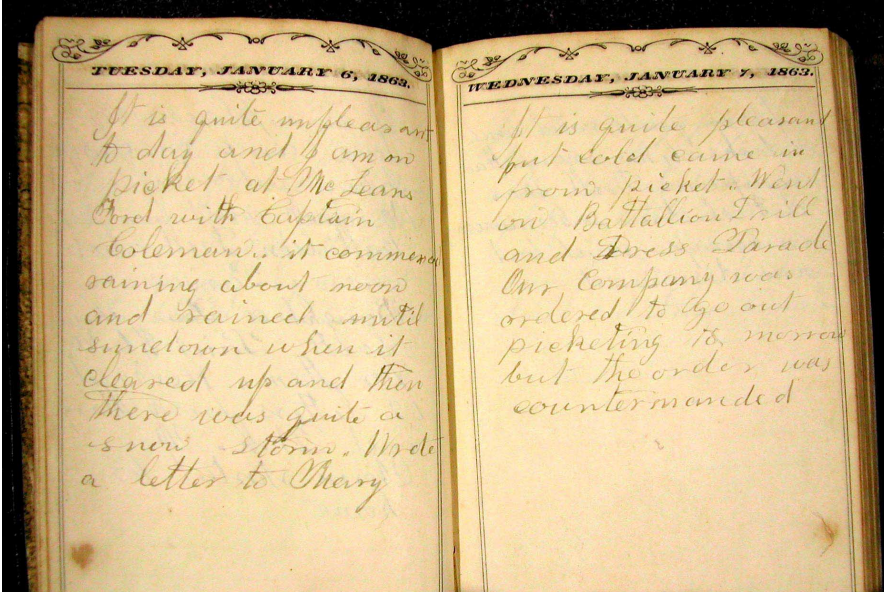 TUESDAY, JANUARY 6, 1863.
It is quite unpleasant
to day and I am on
picket at Mc Leans
Ford with Captain
Coleman. it commenced
raining about noon
and rained until
sundown when it
cleared up and then
there was quite a
snow storm. Wrote
a letter to Mary
WEDNESDAY, JANUARY 7, 1863.
It is quite pleasant
but cold came in
from picket. Went
on Battallion Drill
and Dress Parade
Our Company was
ordered to go out
picketing to morrow
but the order was
countermanded